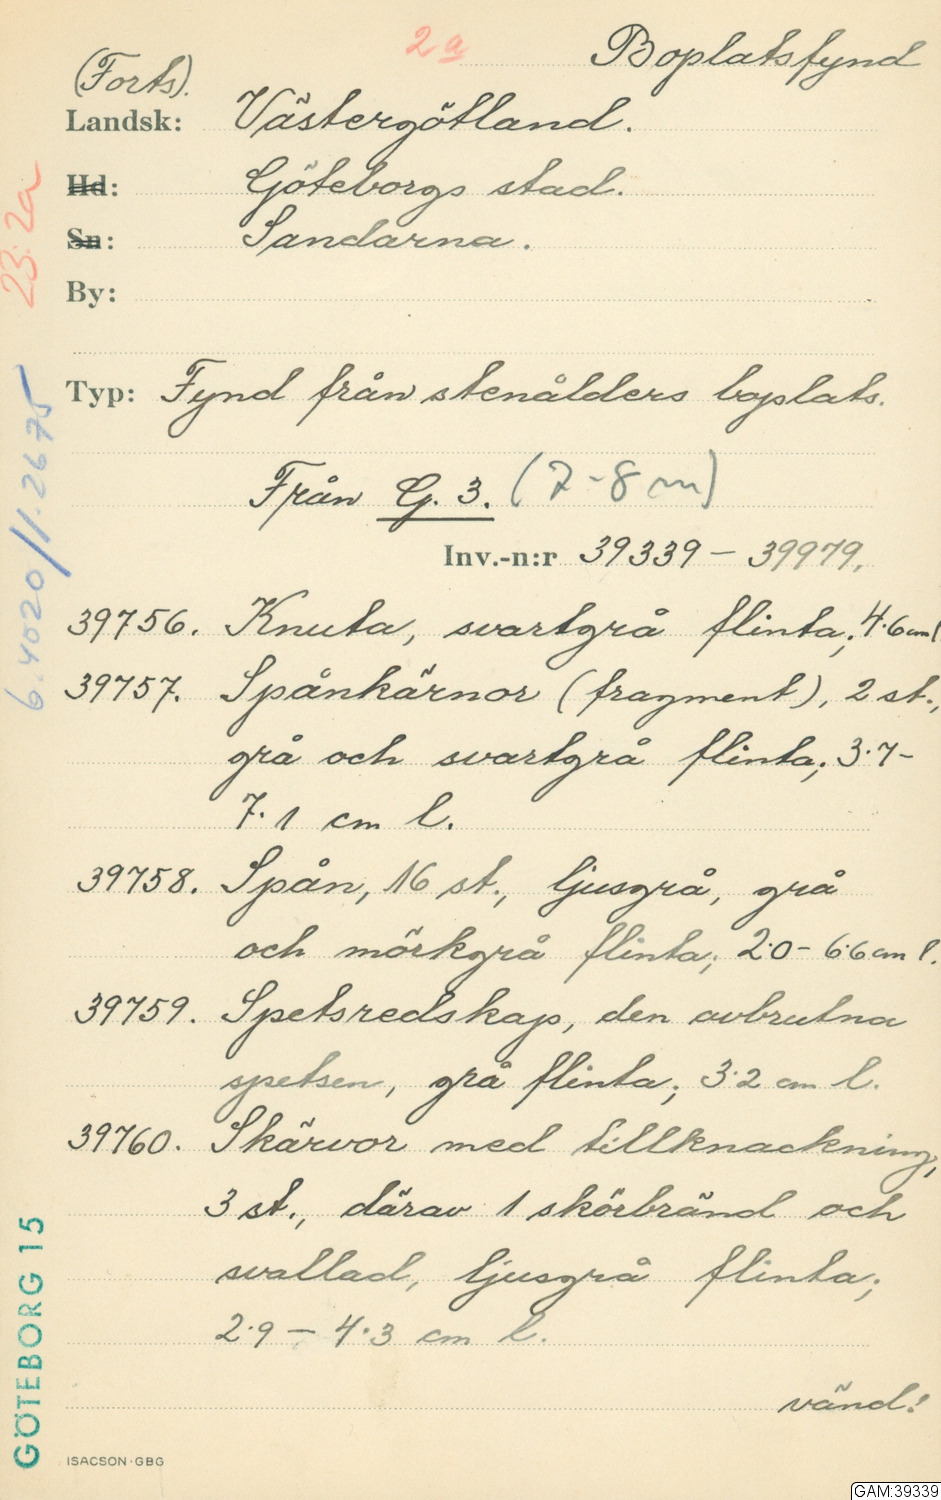 2a Boplatsfynd
(Forts).
Landsk: Västergötland.
Hd: Göteborgs stad.
Sn: Sandarna.
By:
Typ: Fynd från stenålders boplats.
Från G. 3. (7-8 m)
Inv.-n:r 39339 – 39979.
39756. Knuta, svartgrå flinta; 4·6 cm l
39757. Spånkärnor (fragment), 2 st.,
grå och svartgrå flinta; 3·7–
7·1 cm l.
39758. Spån, 16 st., ljusgrå, grå
och mörkgrå flinta; 2·0– 6·6 cm l.
39759. Spetsredskap, den avbrutna
spetsen, grå flinta; 3·2 cm l.
39760. Skärvor med tillknackning,
3 st., därav 1 skörbränd och
svallad, ljusgrå flinta;
2·9 – 4·3 cm l.
vänd!
23:2a
6.4020/1.2675
GÖTEBORG 15
ISACSON·GBG
GAM:39339